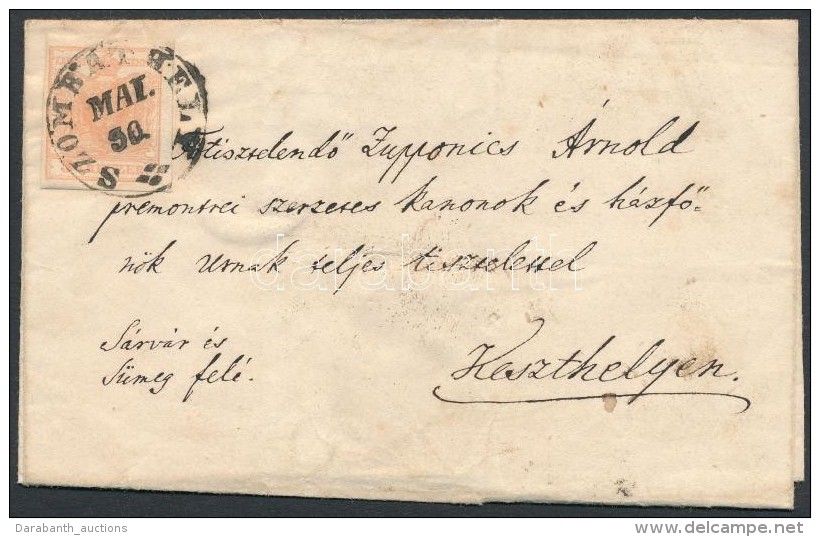 SZOMBATHELY
MAI.
30.
Főtiszelendő Zupponics Árnold
premontrei szerzetes kanonok és házfő=
nök Urnak teljes tisztelettel
Sárvár és
Sümeg felé.
Keszthelyen.
darabanth
Darabanth_auctions
delcampe.net